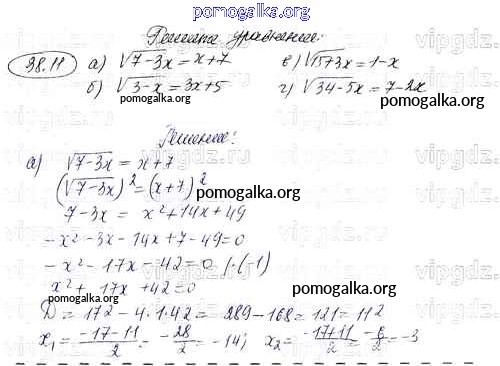 pomogalka.org
Решите уравнение:
38.11 а) √7-3x = x+7 в) √15+3x = 1-x
б) √3-x = 3x+5 г) √34-5x = 7-2x
pomogalka.org pomogalka.org
Решение:
а) √7-3x = x+7
(√7-3x)² = (x+7)²
pomogalka.org
7-3x = x²+14x+49
-x²-3x-14x+7-49=0
-x²-17x-42=0 |·(-1)
pomogalka.org
x²+17x+42=0
D = 17²-4·1·42 = 289-168=121=11²
x₁ = -17-11/2 = -28/2 = -14; x₂ = -17+11/2 = -6/2 = -3
vipgdz.ru